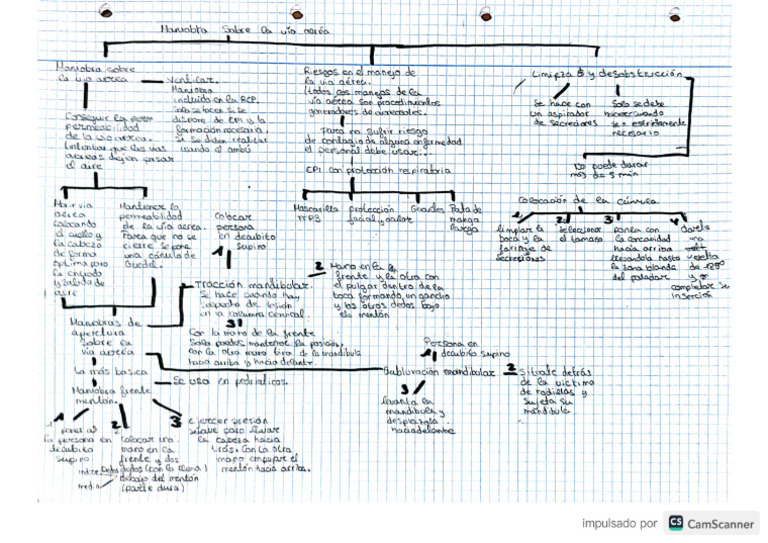 Maniobra sobre la vía aérea
Maniobra sobre
la vía aérea
ventilar.
Maniobra
incluida en la RCP.
Solo se hace si se
dispone de EPI y la
formación necesaria.
Si se debe realizar
usando el ambú
Conseguir la
permeabilidad
de la vía aerea.
(intentar que las vías
aéreas dejen pasar
el aire
Abrir vía
aerea
colocando
el cuello y
la cabeza
de forma
optima para
la entrada
y salida de
aire
Mantener la
permeabilidad
de la vía aerea.
Para que no se
cierre se pone
una cánula de
Guedel.
Colocar
persona
en decubito
supino
1
Riesgos en el manejo de
la vía aérea.
(todos los manejos de la
vía aérea son procedimientos
generadores de aerosoles.
Para no sufrir riesgo
de contagio de alguna enfermedad
el personal debe usar...
EPI con protección respiratoria
Mascarilla
FFP3
protección
facial y ocular
Guantes
Bata de
manga
larga
Limpieza y desobstrucción
Se hace con
un aspirador
de secreciones
Solo se debe
hacer cuando
sea estrictamente
necesario
No puede durar
mas de 5 min
Colocación de la cánula
1
limpiar la
boca y la
faringe de
secreciones
2
seleccionar
el tamaño
3
ponerla con
la concavidad
hacia arriba
llevandola hasta
la zona blanda
del paladar
4
darle
una
vuelta
de 180º
y
completar la
inserción
Tracción mandibular.
Se hace cuando hay
sospecha de lesión
en la columna cervical.
2 Mano en la
frente y la otra con
el pulgar dentro de la
boca formando un gancho
y los otros dedos bajo
el mentón
3
Con la mano de la frente
Solo puedes mantener la posición,
con la otra mano tira de la mandibula
hacia arriba y hacia delante.
Maniobras de
apertura
sobre la
vía aerea
La más basica
Se usa en pediatricos.
Maniobra frente
mentón.
1
poner a
la persona en
decubito
supino
2
colocar una
mano en la
frente y dos
dedos (con la
indice
medio
debajo del mentón
(parte dura)
3 ejercer presión
suave para llevar
la cabeza hacia
trás. Con la otra
mano empuje el
mentón hacia arriba.
Subluxación mandibular
Persona en
1 decubito supino
2 situate detrás
de la victima
de rodillas y
sujeta su
mandibula
3
levanta la
mandibula y
desplazala
hacia delante
impulsado por CS CamScanner